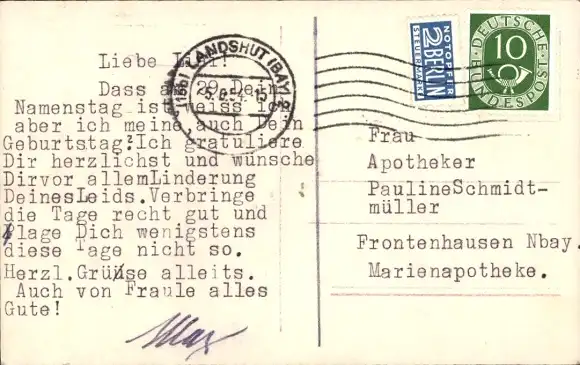 Liebe !
Dass am 29. Dein
Namenstag ist weiss ich
aber ich meine auch Dein
Geburtstag?Ich gratuliere
Dir herzlichst und wünsche
Dirvor allemLinderung
DeinesLeids.Verbringe
die Tage recht gut und
plage Dich wenigstens
diese Tage nicht so.
Herzl.Grüsse alleits.
Auch von Fraule alles
Gute!
Max
LANDSHUT (BAY)
NOTOPFER
2 BERLIN
STEUERMARKE
DEUTSCHE
10
BUNDESPOST
Frau
Apotheker
PaulineSchmidt-
müller
Frontenhausen Nbay.
Marienapotheke.